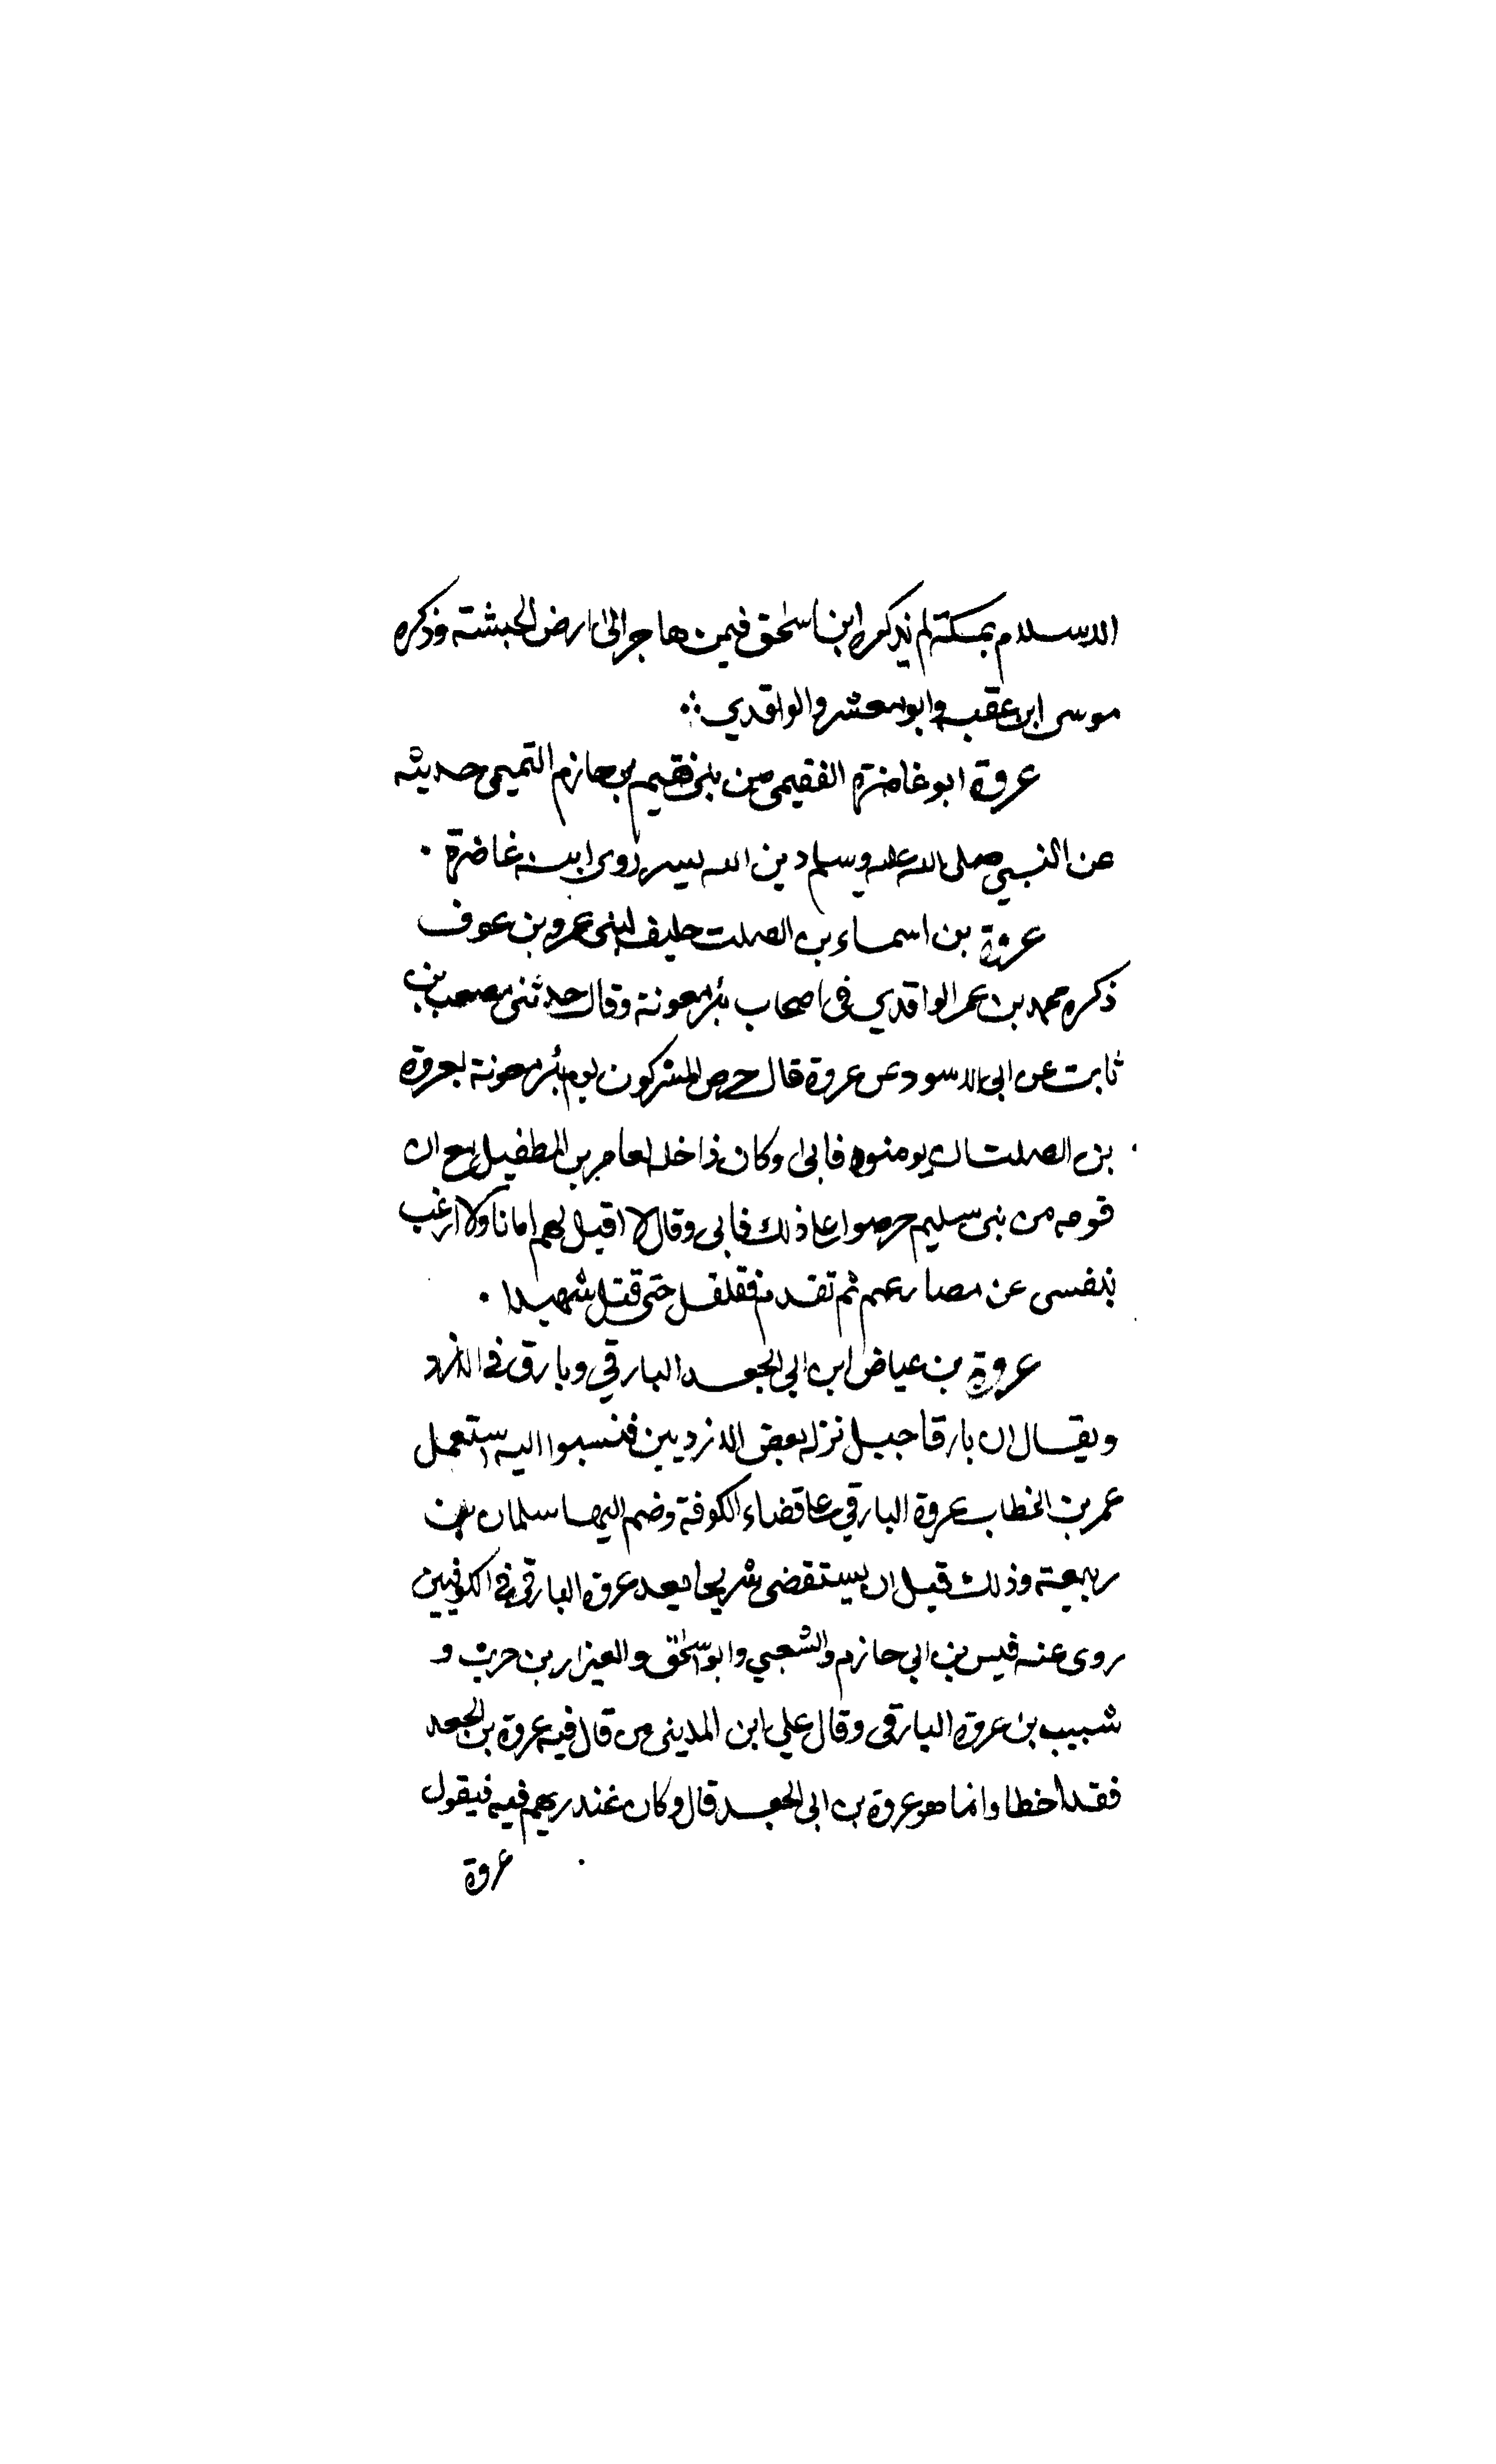 الاسلام بمكة لم يذكره ابن اسحق فيمن هاجر الى ارض الحبشة وذكره
موسى ابن عقبه وابو معشر والواقدي
عروة ابو غاضرة الفقيمى من بنى فقيم بن حازم التميمى حديثه
عن النبي صلى الله عليه وسلم دين الله يسر روى ابنه غاضرة
عروة بن اسماء بن الصلت حليف لبنى عمرو بن عوف
ذكره محمد بن عمر الواقدي فى اصحاب بئر معونة وقال حدثنى مصعب بن
ثابت عن ابى الاسود عن عروة قال حرص المشركون يوم بئر معونة بعروة
بن الصلت ان يومنوه فابى وكان ذا خله لعامر بن الطفيل مع ان
قومه من بنى سليم حرصوا على ذلك فابى وقال لا اقبل لهم امانا ولا ارغب
بنفسى عن مصارعهم ثم تقدم فقاتل حتى قتل شهيدا
عروة بن عياض ابن ابي الجعد البارقي وبارق فى الازد
ويقال ان بارقا جبل نزله بعض الازديين فنسبوا اليه استعمل
عمر بن الخطاب عروة البارقي على قضاء الكوفة وضم اليها سلمان بن
ربيعة وذلك قبل ان يستقضى شريحا يعد عروة البارقى فى الكوفيين
روى عنه قيس بن ابي حازم والشعبي وابو اسحق والعيزار بن حريث و
شبيب بن عروة البارقى وقال علي ابن المدينى من قال فيه عروة بن الجعد
فقد اخطا وانما هو عروة بن ابى الجعد قال وكان غندر يهم فيه فيقول
عروة